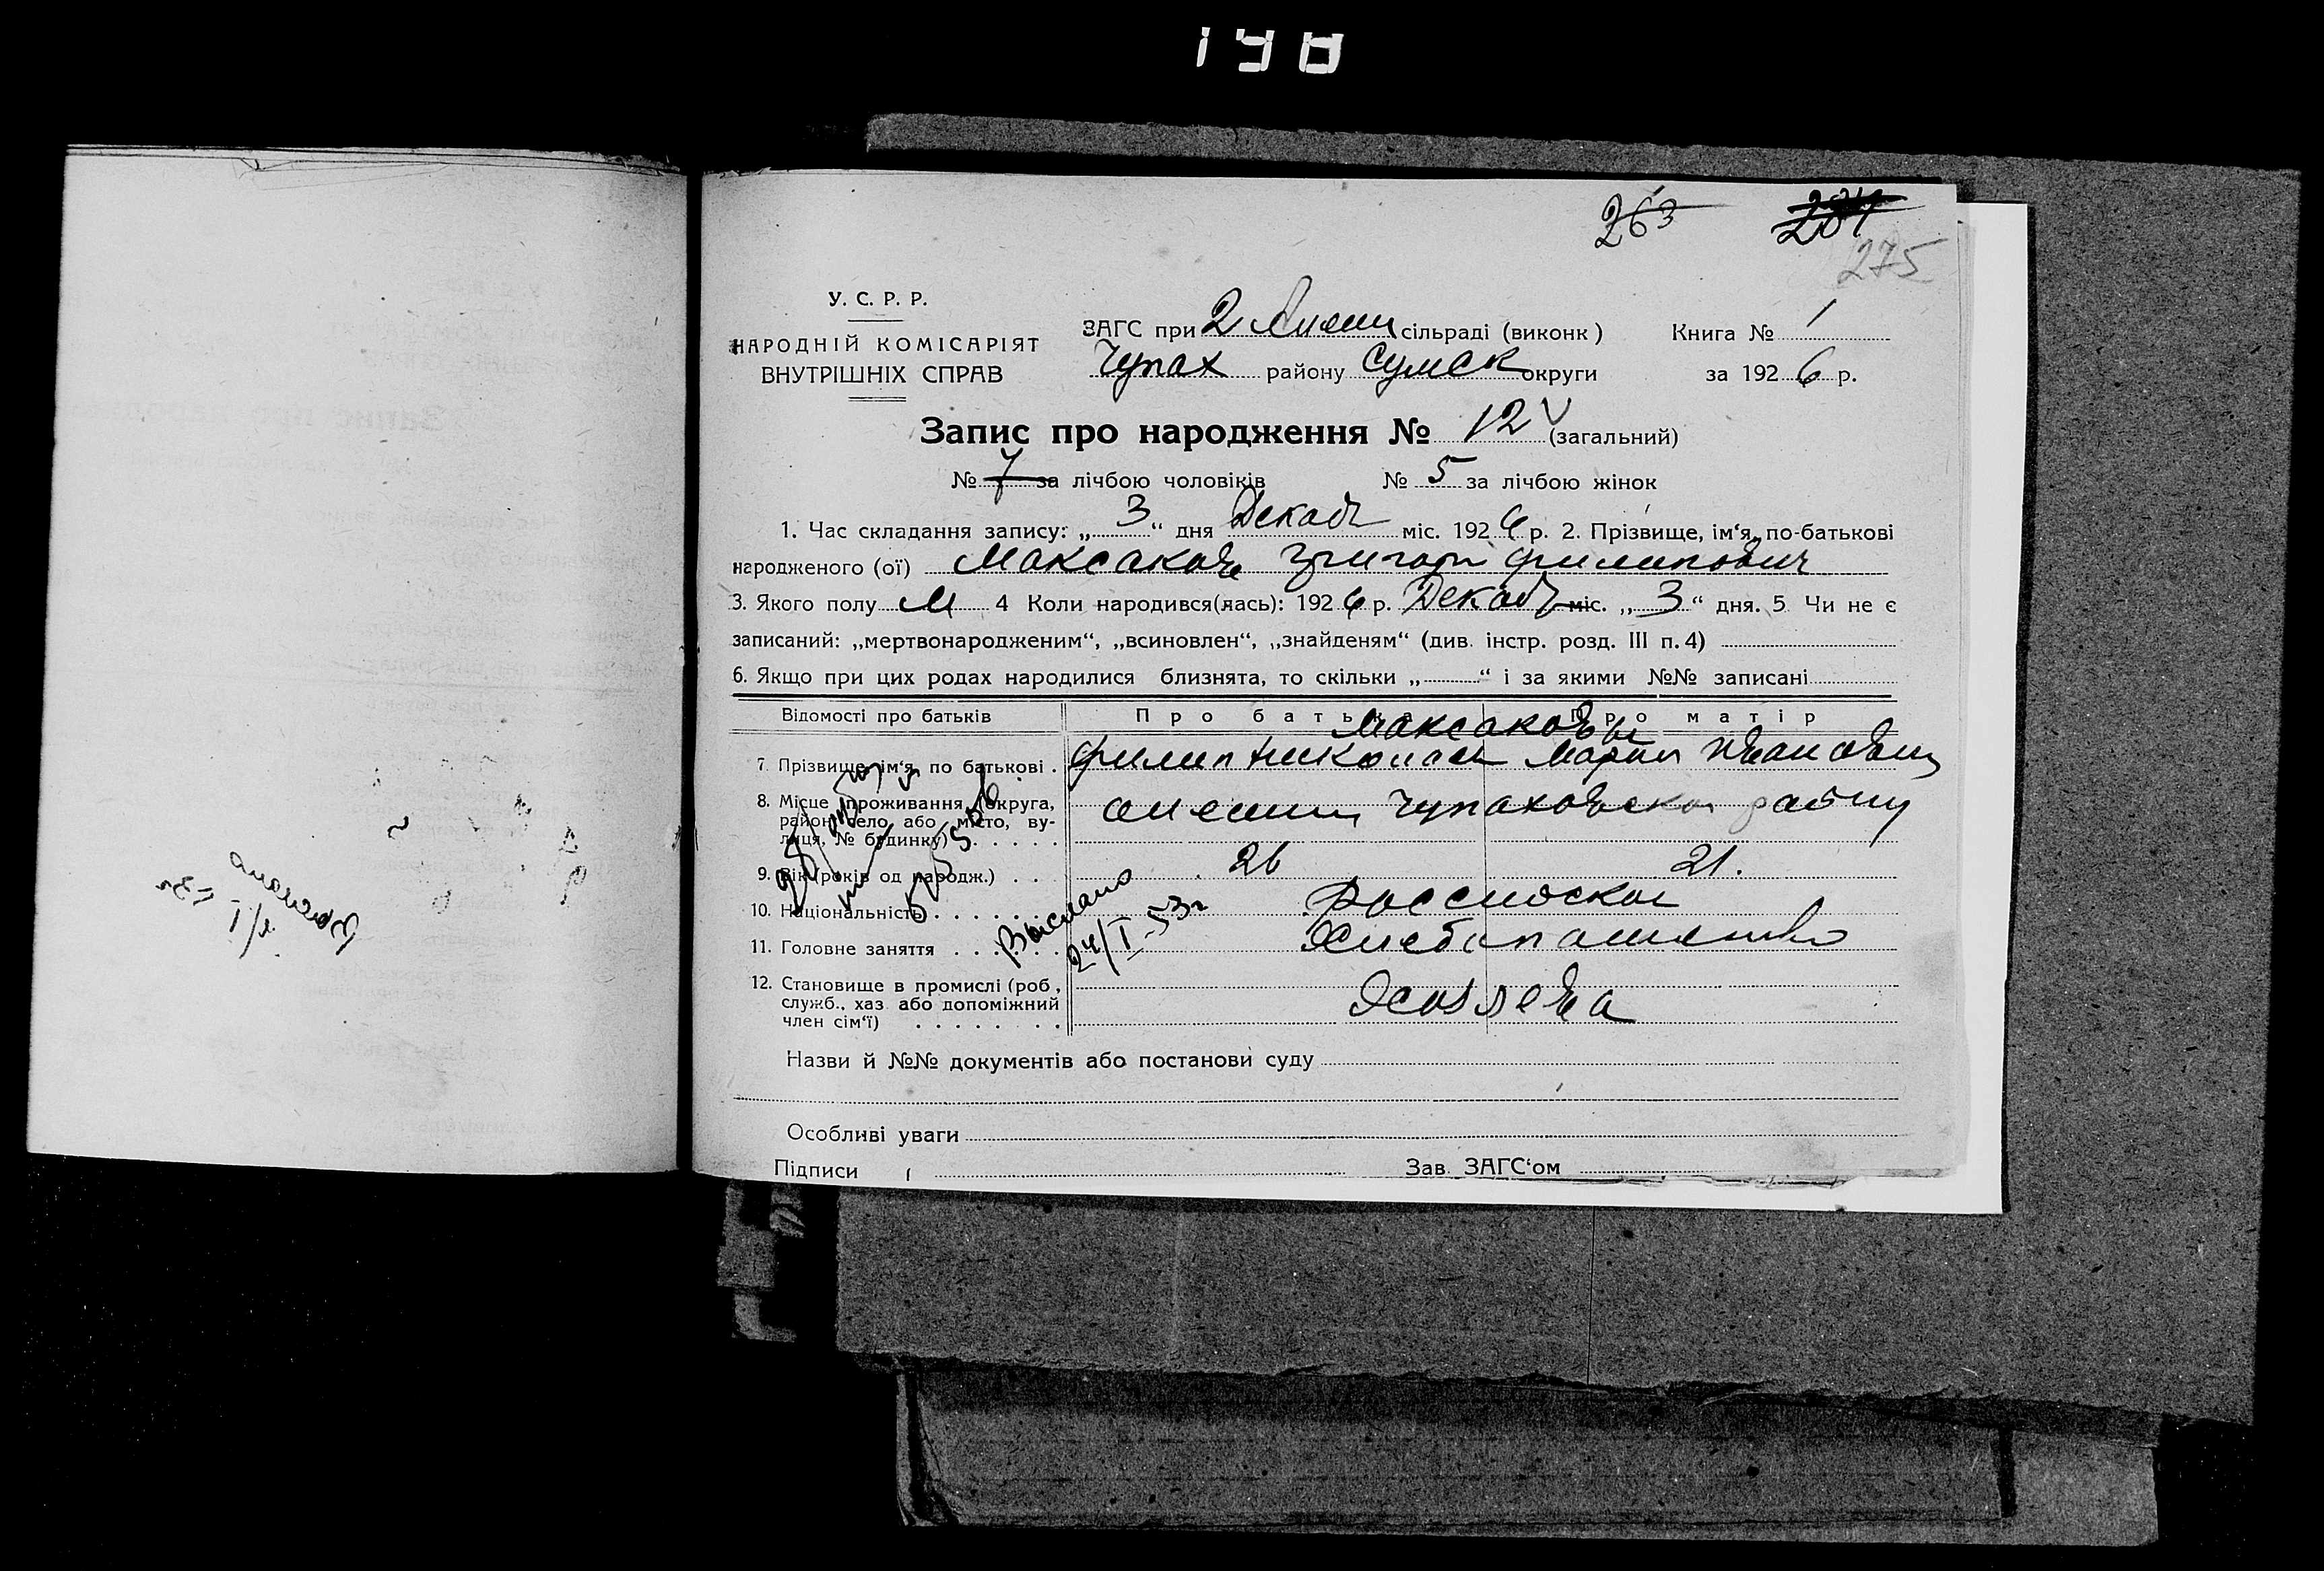 198
263 284
275
У. С. Р. Р.
НАРОДНІЙ КОМІСАРІЯТ
ВНУТРІШНІХ СПРАВ
ЗАГС при 2 сільраді (виконк) Книга № 1
Чупах району Сумск округи за 1926 р.
Запис про народження № 12 (загальний)
№ 7 за лічбою чоловіків № 5 за лічбою жінок
1. Час складання запису: „3“ дня Декаб міс. 1926 р. 2. Прізвище, ім‘я, по-батькові
народженого (ої) Максаков Григори Филипович
3. Якого полу М 4 Коли народився(лась): 1926 р. Декаб міс. „3“ дня. 5 Чи не є
записаний: „мертвонародженим“, „всиновлен“, „знайденям“ (див. інстр. розд. III п. 4)
6. Якщо при цих родах народилися близнята, то скільки „ “ і за якими №№ записані
Відомості про батьків Про батька Про матір
Максаковы
7. Прізвище, ім‘я, по батькові . Филип Николаев Мария Ивановна
8. Місце проживання (округа,
район, село або місто, ву-
лиця, № будинку) . . . . .
Чупаховской району
9. Вік (років од народж.) . . . 26 21.
10. Національність . . . . . . Российской
11. Головне заняття . . . . . Хлебопашество
12. Становище в промислі (роб,
служб., хаз. або допоміжний
член сім‘ї) . . . . . . . .
Хозяева
Выслано
24/I-53г
Назви й №№ документів або постанови суду
Особливі уваги
Підписи Зав. ЗАГС‘ом